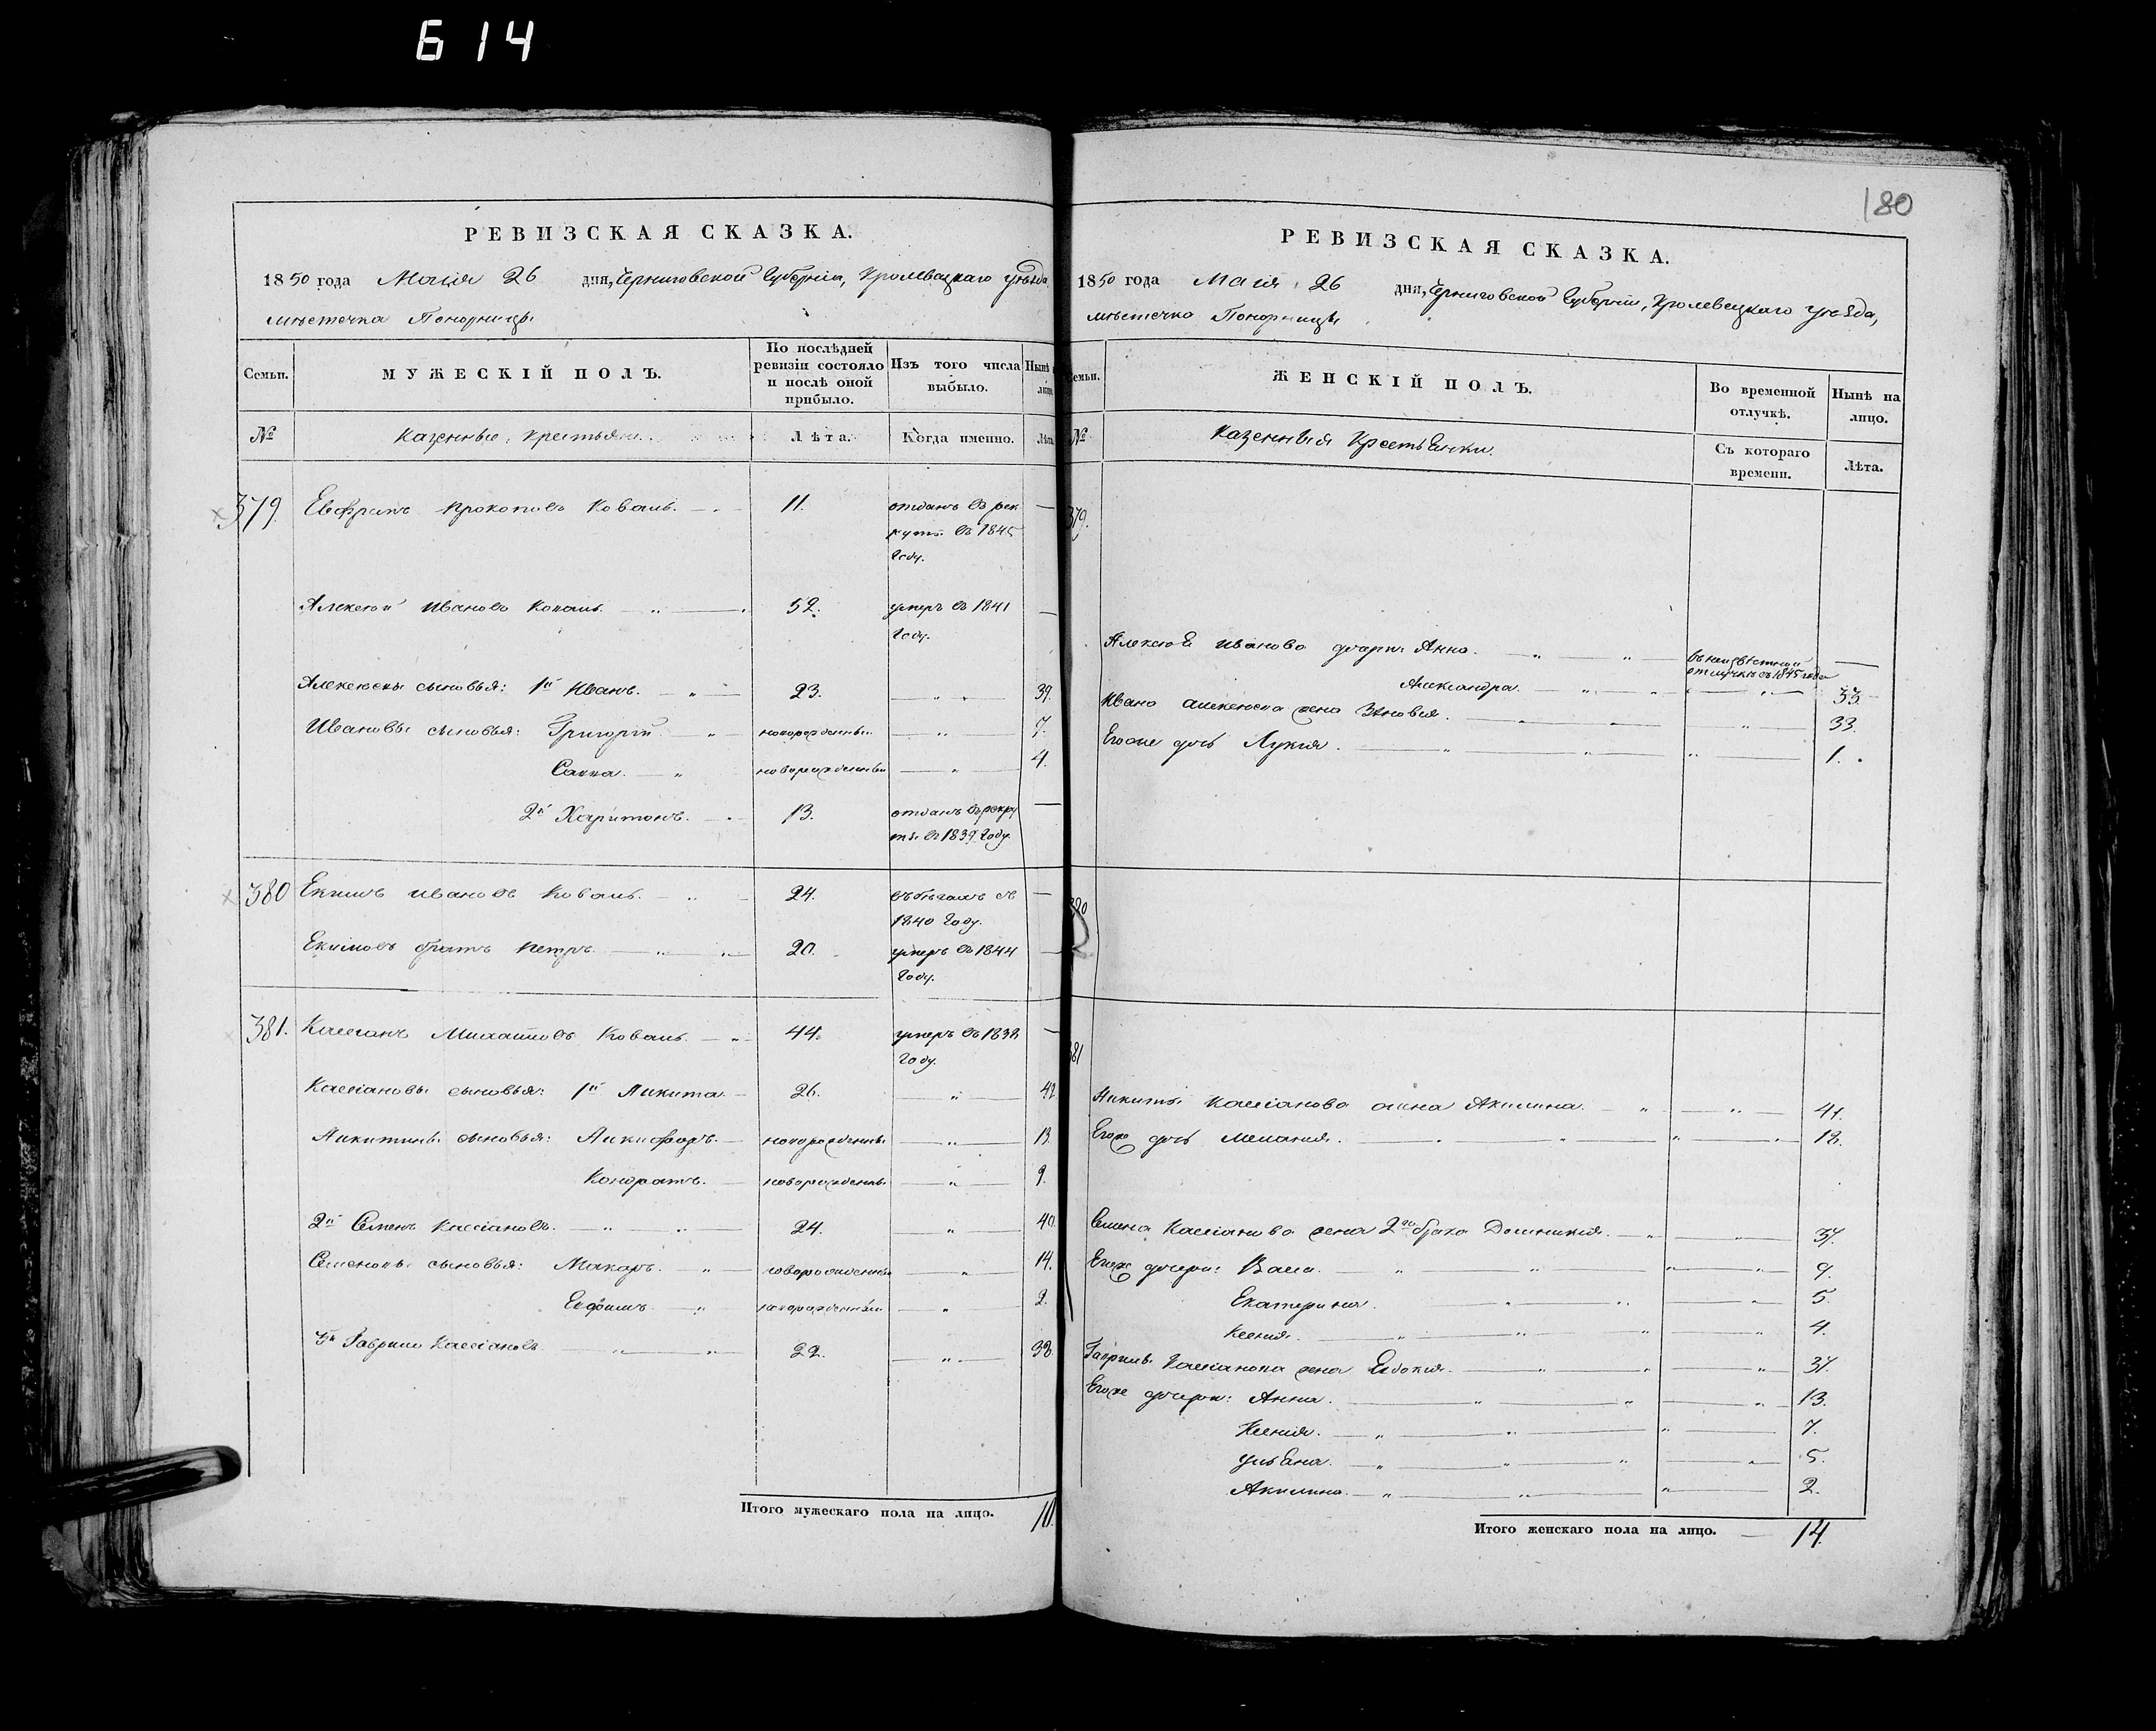 614
180
РЕВИЗСКАЯ СКАЗКА.
1850 года Маія 26 дня, Черниговской Губерніи, Кролевецкаго уѣзда
мѣстечка Понорницы
Семьи. МУЖЕСКІЙ ПОЛЪ. По послѣдней ревизіи состояло и послѣ оной прибыло. Изъ того числа выбыло. Нынѣ на лицо.
№ Казенные Крестьяне. Лѣта. Когда именно. Лѣта.
379. Прокоповъ Коваль. 11. отданъ въ рек
руты въ 1845
году.
Алексѣй Ивановъ Коваль. 52. умеръ въ 1841 —
году.
Алексѣевы сыновья: 1й Иванъ. 23. 39.
Ивановы сыновья: Григорій новорожденный 7.
Савва. новорожденный 4.
2й Харитонъ. 13. отданъ въ рекру —
ты въ 1839 году.
380 Екимъ Ивановъ Коваль. 24. въ бѣгахъ съ —
1840 году.
Екимовъ братъ Петръ. 20. умеръ въ 1844 —
году.
381. Кассіанъ Михайловъ Коваль. 44. умеръ въ 1838 —
году.
Кассіановы сыновья: 1й Никита 26. 42
Никитины сыновья: Никифоръ. новорожденный 13.
Кондратъ. новорожденный 9.
2й Семенъ Кассіановъ. 24. 40.
Семеновы сыновья: Макаръ. новорожденный 14.
Евфимъ. новорожденный 2.
3й Гаврило Кассіановъ 22. 38.
Итого мужескаго пола на лицо. 10.
РЕВИЗСКАЯ СКАЗКА.
1850 года Маія 26 дня, Черниговской Губерніи, Кролевецкаго уѣзда,
мѣстечка Понорницы
Семьи. ЖЕНСКІЙ ПОЛЪ. Во временной отлучкѣ. Нынѣ на лицо.
№ Казенныя Крестьянки. Съ котораго времени. Лѣта.
379.
Алексѣя Иванова дочери: Анна. въ неизвѣстной —
отлучкѣ съ 1845 года
Александра. 33.
Ивана Алексѣева жена Зѣновія. 33.
Егоже дочь Лукія. 1.
380
381
Никиты Кассіанова жена Акилина. 41.
Егоже дочь Меланія. 18.
Семена Кассіанова жена 2го брака Домникія. 37.
Егоже дочери: Васса. 9.
Екатерина. 5.
Ксенія. 4.
Гаврилы Кассіанова жена Евдокія. 37.
Егоже дочери: Анна. 13.
Ксенія. 7.
Ульяна. 5.
Акилина. 2.
Итого женскаго пола на лицо. — 14.